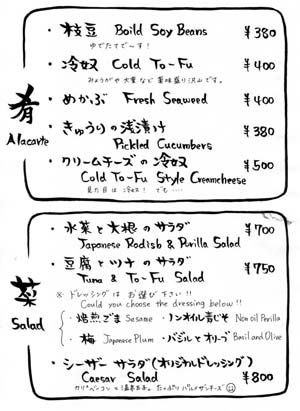 肴
Alacarte
・枝豆 Boild Soy Beans ¥380
ゆでたてで〜す!
・冷奴 Cold To-Fu ¥400
みょうがや大葉など薬味盛り沢山です。
・めかぶ Fresh Seaweed ¥400
・きゅうりの浅漬け ¥380
Pickled Cucumbers
・クリームチーズの冷奴 ¥500
Cold To-Fu Style Creamcheese
見た目は冷奴! でも‥‥
菜
Salad
・水菜と大根のサラダ ¥700
Japanese Radish & Perilla Salad
・豆腐とツナのサラダ ¥750
Tuna & To-Fu Salad
※ ドレッシングはお選び下さい!!
Could you choose the dressing below!!
・焙煎ごま Sesame ・ノンオイル青じそ Non oil Perilla
・梅 Japanese Plum ・バジルとオリーブ Basil and Olive
・シーザーサラダ(オリジナルドレッシング)
Caesar Salad ¥800
カリカリベーコンと温泉玉子。たっぷりパルメザンチーズ